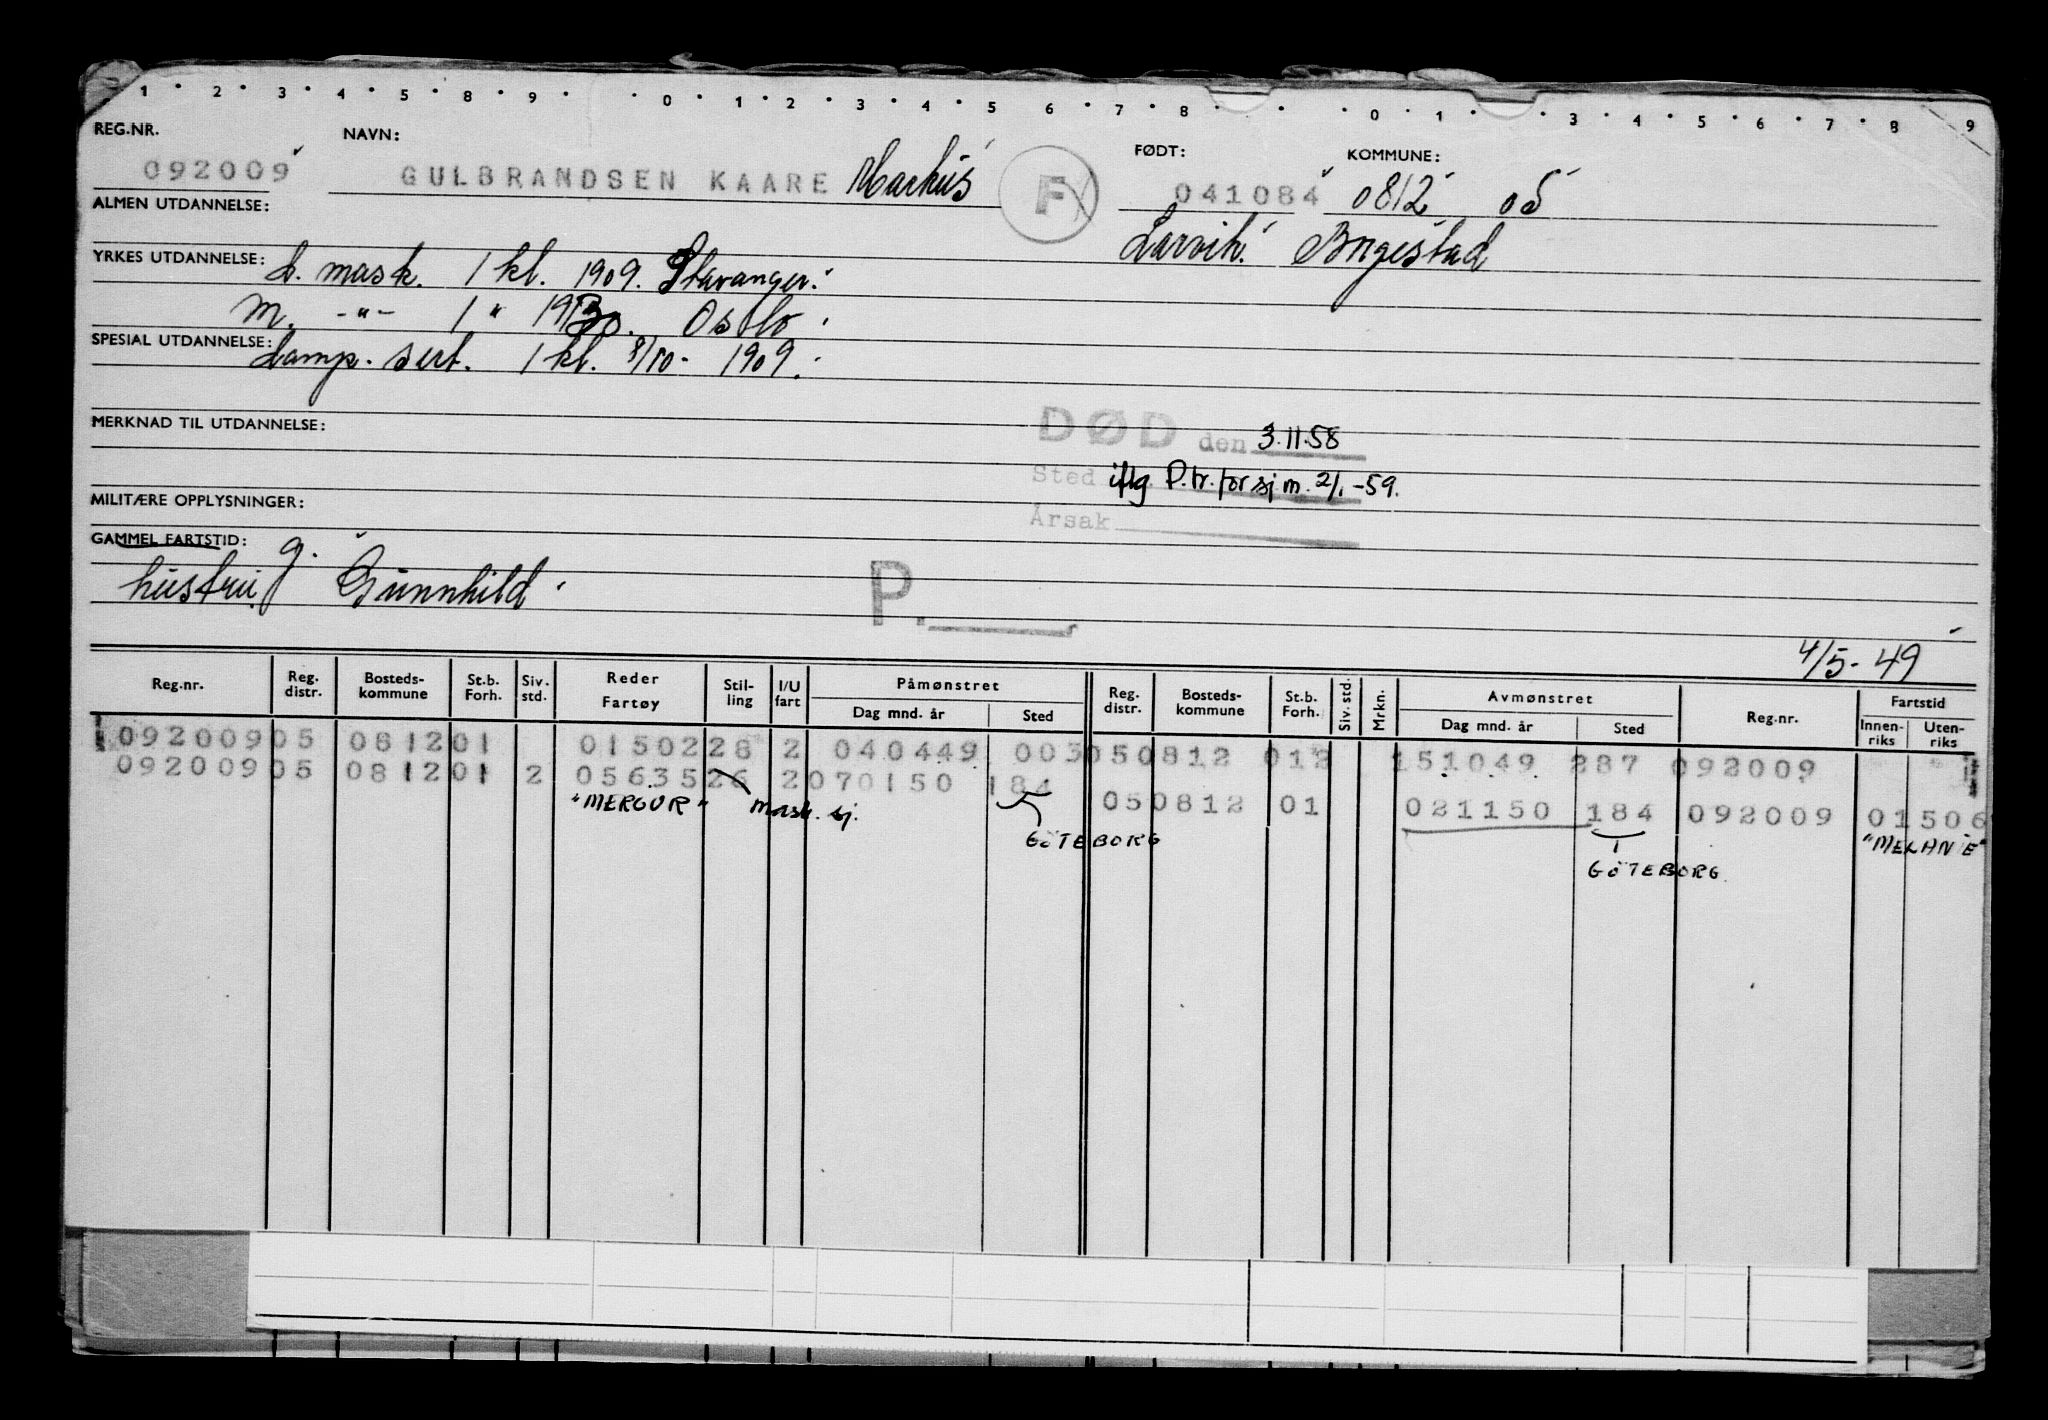 1 · 2 · 3 · 4 · 5 · 8 · 9 · · 0 · 1 · 2 · 3 · 4 · 5 6 · 7 · 8 · · · 0 · 1 · · 3 · 4 · 5 · 6 · 7 · 8 · 9
REG.NR. NAVN: FØDT: KOMMUNE:
092009 GULBRANDSEN KAARE Markus F 041084 0812 05
ALMEN UTDANNELSE: Larvik
YRKES UTDANNELSE: d. mask. 1 kl. 1909. Stavanger.
M. -"- 1 " Oslo
SPESIAL UTDANNELSE: damp. sert. 1 kl. 8/10- 1909.
MERKNAD TIL UTDANNELSE: DØD den 3.11.58
Sted iflg P.tr. for sjm. 2/1-59.
MILITÆRE OPPLYSNINGER: Årsak
GAMMEL FARTSTID: g.
hustru Gunnhild P.
4/5-49
Reg.nr. Reg. distr. Bosteds- kommune St.b. Forh. Siv. std. Reder Fartøy Stil- ling I/U fart Påmønstret Dag mnd. år Sted Reg. distr. Bosteds- kommune St.b. Forh. Siv. std. Mrkn. Avmønstret Dag mnd. år Sted Reg.nr. Fartstid Innen- riks Uten- riks
092009 05 0812 01 01502 28 2 040449 003 05 0812 01 2 151049 287 092009
092009 05 0812 01 2 05635 26 2 070150 184 05 0812 01 021150 184 092009 01506
"MERCUR" mask. sj. GÖTEBORG GÖTEBORG "MELANIE"